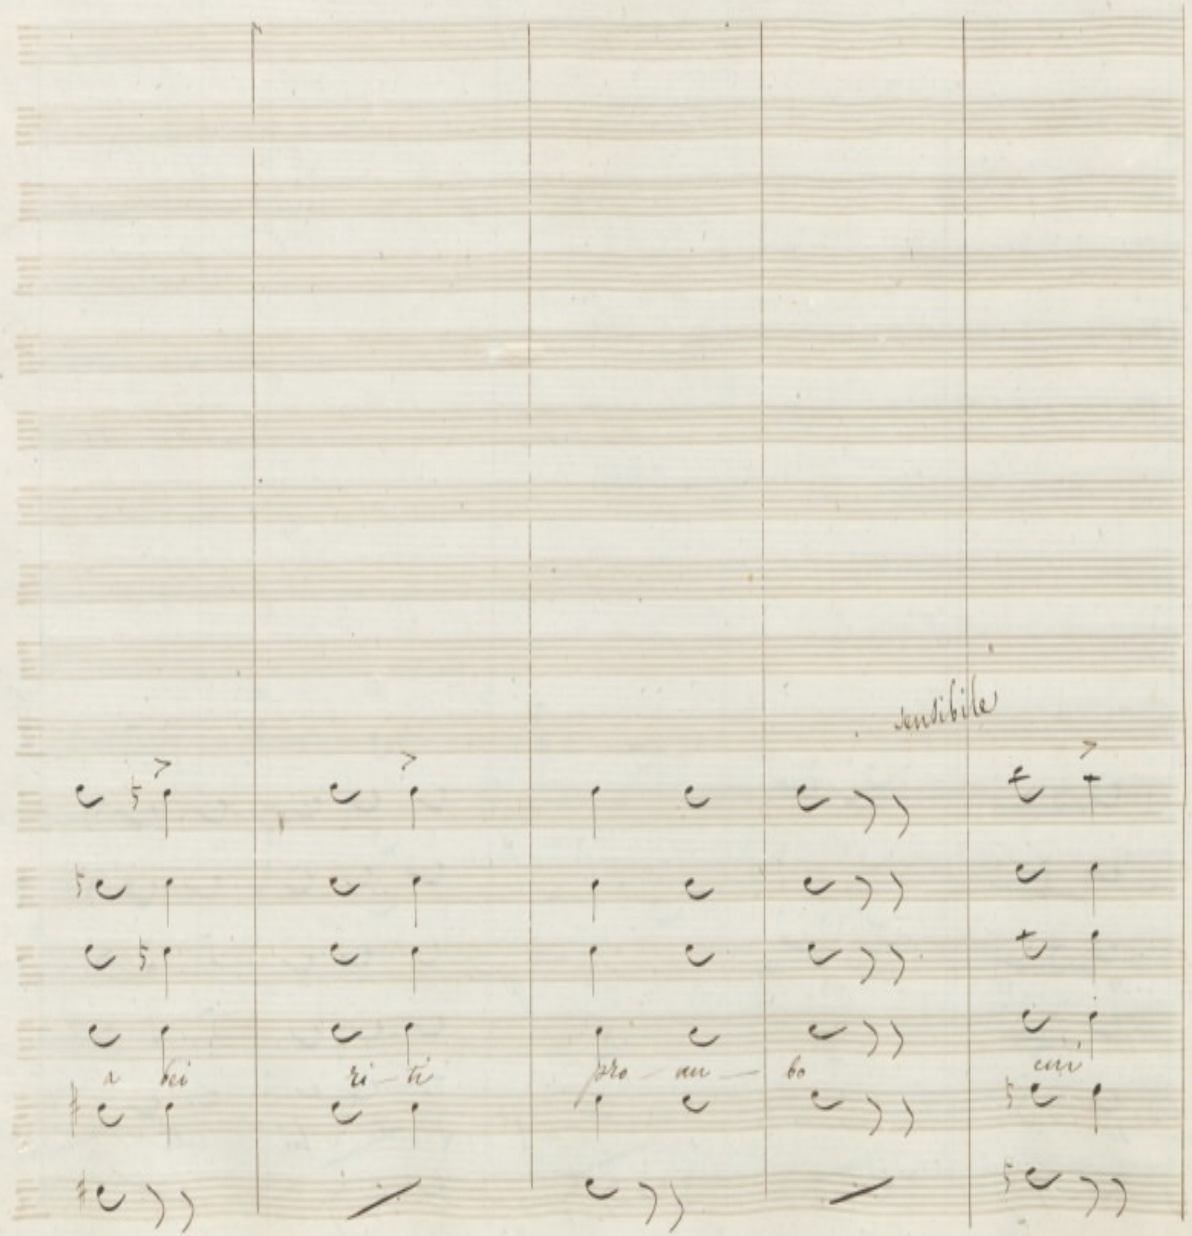 sensibile
a dei ri - ti pro - nu - bo cui